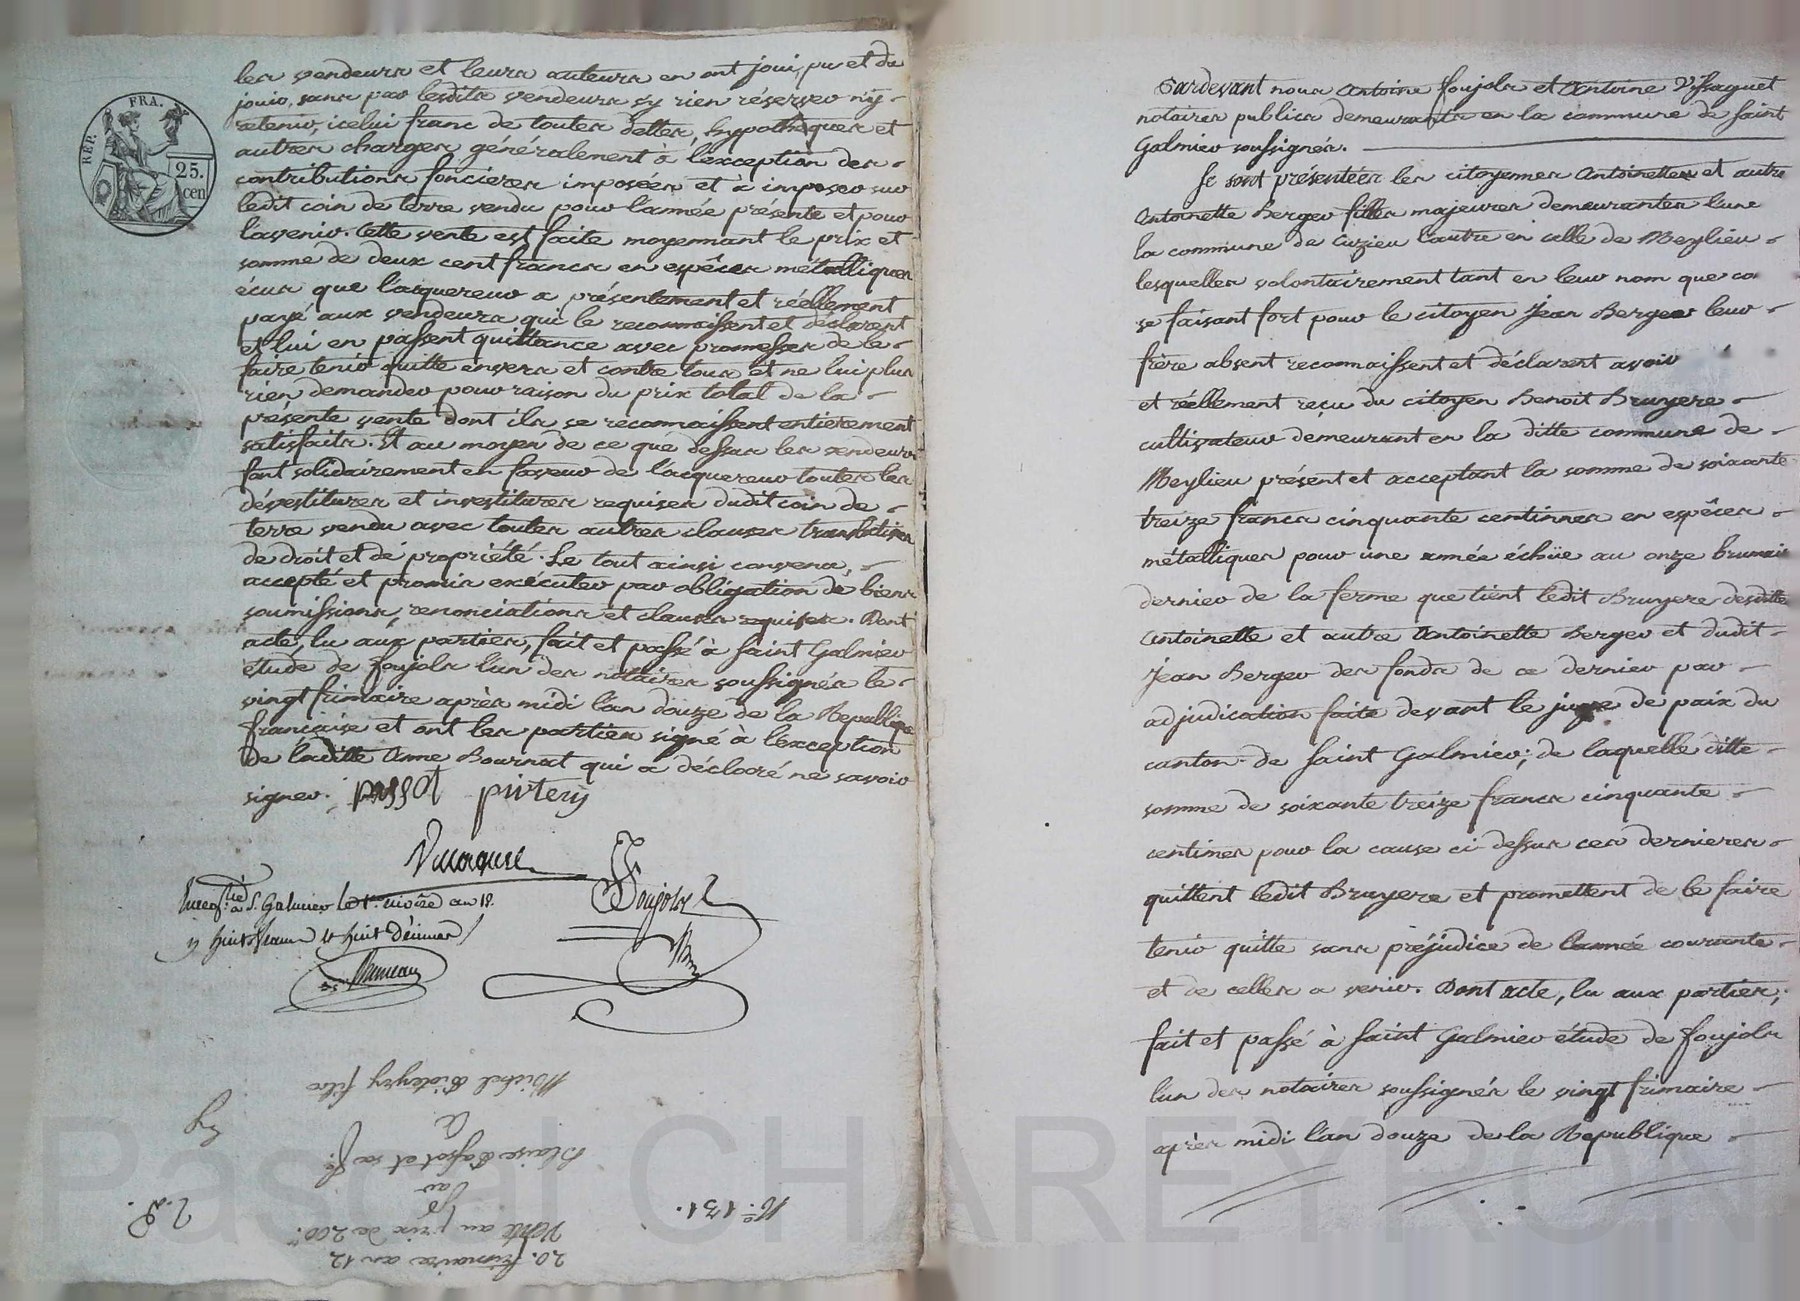 REP. FRA.
25.
cen
les vendeurs et leurs auteurs en ont joui, pu et du
jouir, sans par lesdits vendeurs s'y rien réserver n'y
retenir, icelui franc de toutes dettes, hypothèques et
autres charges généralement à l'exception des
contributions foncières imposées et à imposer sur
ledit coin de terre vendu pour l'année présente et pour
l'avenir. Cette vente est faite moyennant le prix et
somme de deux cent francs en espèces métalliques
écus que l'acquereur a présentement et réellement
payé aux vendeurs qui le reconnaissent et déclarent
et lui en passent quittance avec promesses de le
faire tenir quitte envers et contre tous et ne lui plus
rien demander pour raison du prix total de la
présente vente dont ils se reconnaissent entièrement
satisfaits. Et au moyen de ce que dessus les vendeurs
font solidairement en faveur de l'acquereur toutes les
dévestitures et investitures requises dudit coin de
terre vendu avec toutes autres clauses translatives
de droit et de propriété. Le tout ainsi convenu,
accepté et promis exécuter par obligation de biens
soumissions, renonciations et clauses requises. Dont
acte, lu aux parties, fait et passé à Saint Galmier
étude de Foujols l'un des notaires soussignés le
vingt frimaire après midi l'an douze de la République
française et ont les parties signé à l'exception
de laditte Anne Bournat qui a déclaré ne savoir
signer. passot
Foujols
à S. Galmier le 1er nivôse an 12.
huit francs huit décimes
Bruneau
20. frimaire an 12
Vente au prix de 200f
Par
Blaise Passot et sa fe.
A
Michel fils
No. 131.
Pardevant nous Antoine Foujols et Antoine Vissaguet
notaires publics demeurants en la commune de Saint
Galmier soussignés.
Se sont présentées les citoyennes Antoinette et autre
Antoinette Berger filles majeures demeurantes l'une
la commune de Cuzieu l'autre en celle de Meylieu
lesquelles volontairement tant en leur nom que co
se faisant fort pour le citoyen Jean Berger leur
frère absent reconnaissent et déclarent avoir
et réellement reçu du citoyen Benoit Bruyere
cultivateur demeurant en la ditte commune de
Meylieu présent et acceptant la somme de soixante
treize francs cinquante centimes en espèces
métalliques pour une année échue au onze brumaire
dernier de la ferme que tient ledit Bruyere desdittes
Antoinette et autre Antoinette Berger et dudit
Jean Berger des fonds de ce dernier par
adjudication faite devant le juge de paix du
canton de Saint Galmier; de laquelle ditte
somme de soixante treize francs cinquante
centimes pour la cause ci dessus ces dernieres
quittent ledit Bruyere et promettent de le faire
tenir quitte sans préjudice de l'année courante
et de celles a venir. Dont acte, lu aux parties,
fait et passé à Saint Galmier étude de Foujols
l'un des notaires soussignés le vingt frimaire
après midi l'an douze de la République
Pascal CHAREYRON